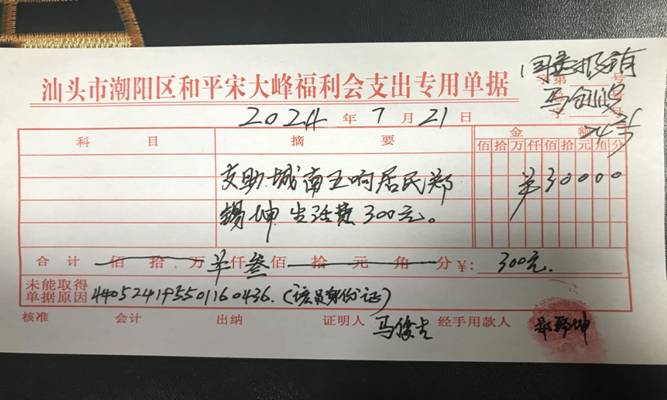 汕头市潮阳区和平宋大峰福利会支出专用单据
同意报销
第 号
2024 年 7 月 21 日
科目 摘要 金额
佰拾万仟佰拾元角分
支助城南五响居民郑 ¥30000
锡坤生活费300元。
合计 佰拾万¥仟叁佰拾元角分 ¥: 300元.
未能取得
单据原因 440524195501160436.(该员身份证)
核准 会计 出纳 证明人 马俊吉 经手用款人